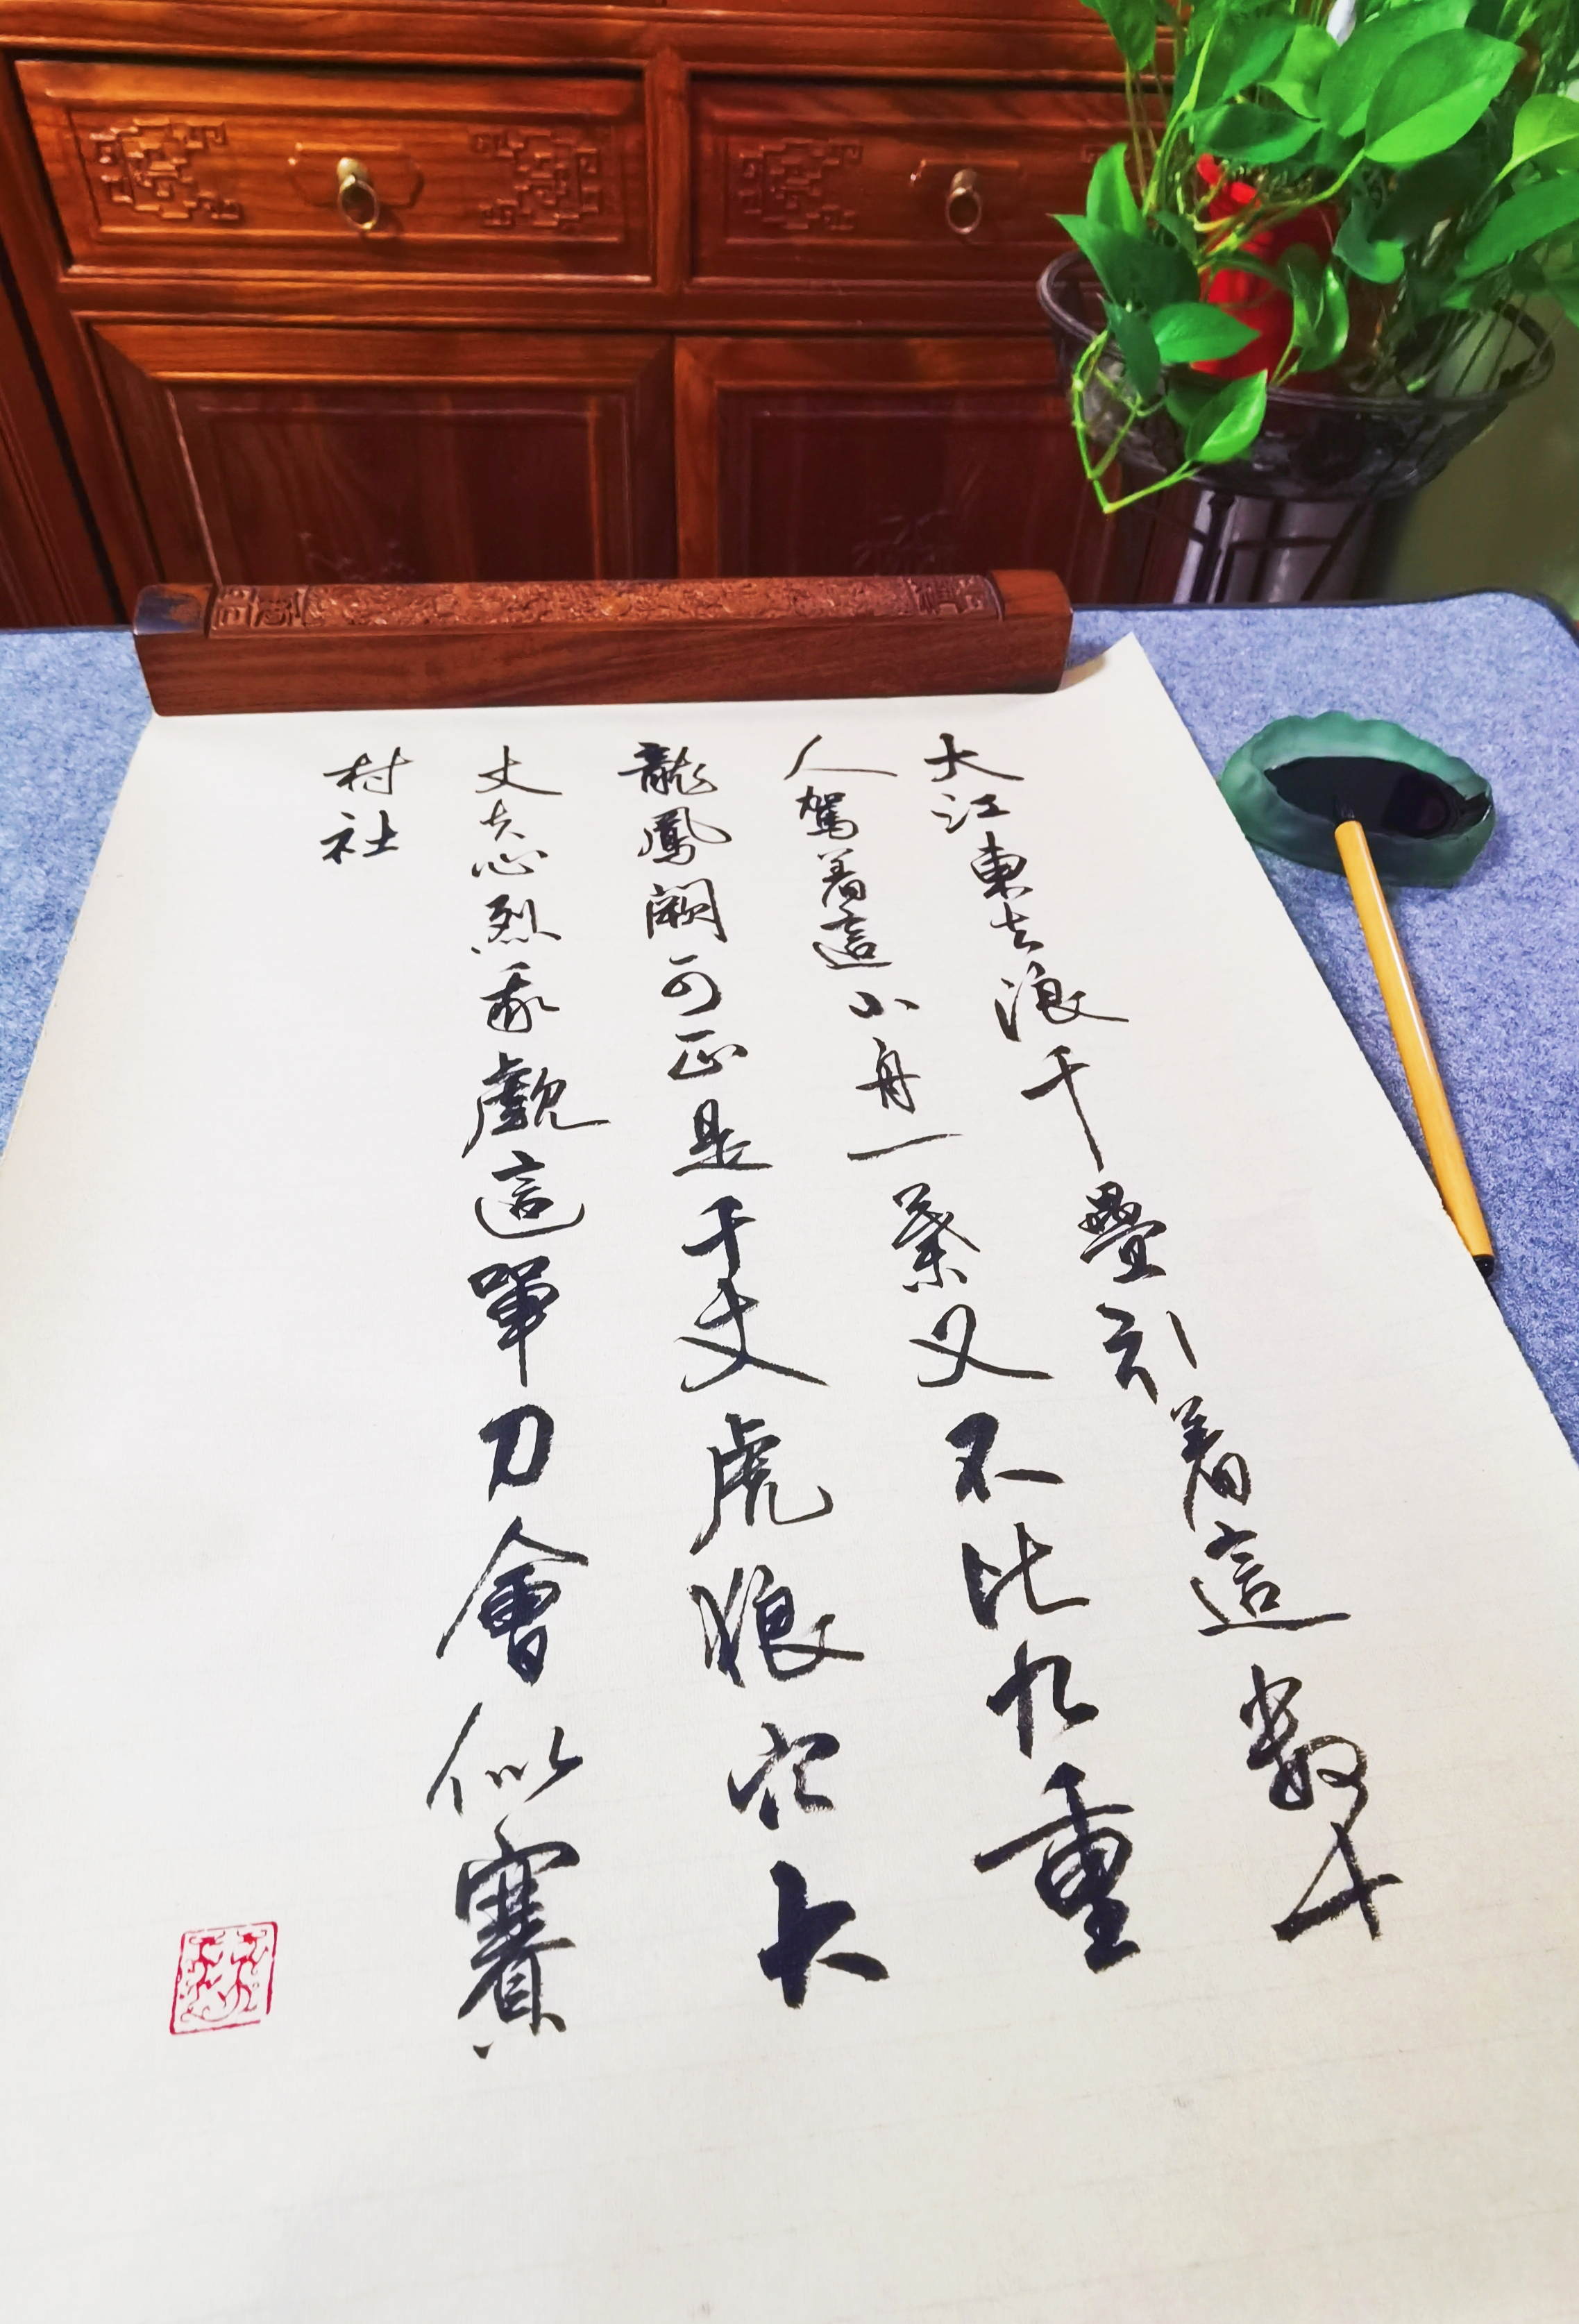 大江東去浪千疊引着這數十
人駕着這小舟一葉又不比九重
龍鳳闕可正是千丈虎狼穴大
丈夫心烈我覷這單刀會似賽
村社